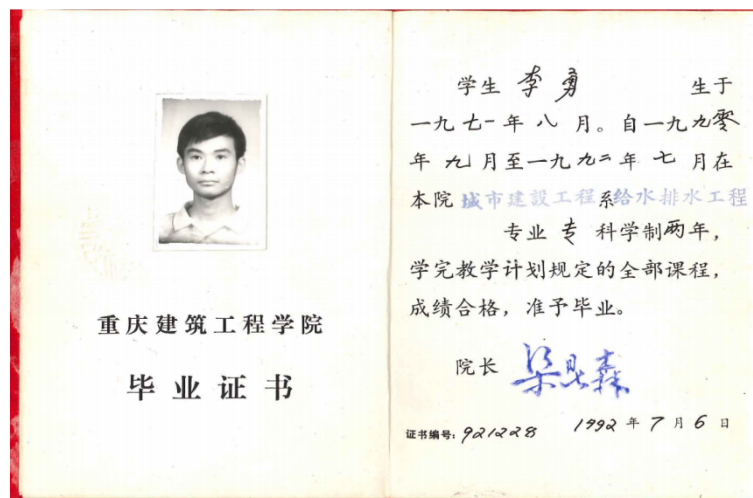 重庆建筑工程学院
毕业证书
学生 李勇 生于
一九七一年八月。自一九九零
年九月至一九九二年七月在
本院 城市建設工程系给水排水工程
专业 专 科学制两年，
学完教学计划规定的全部课程，
成绩合格，准予毕业。
院长 梁鼎森
证书编号：921228 1992年7月6日